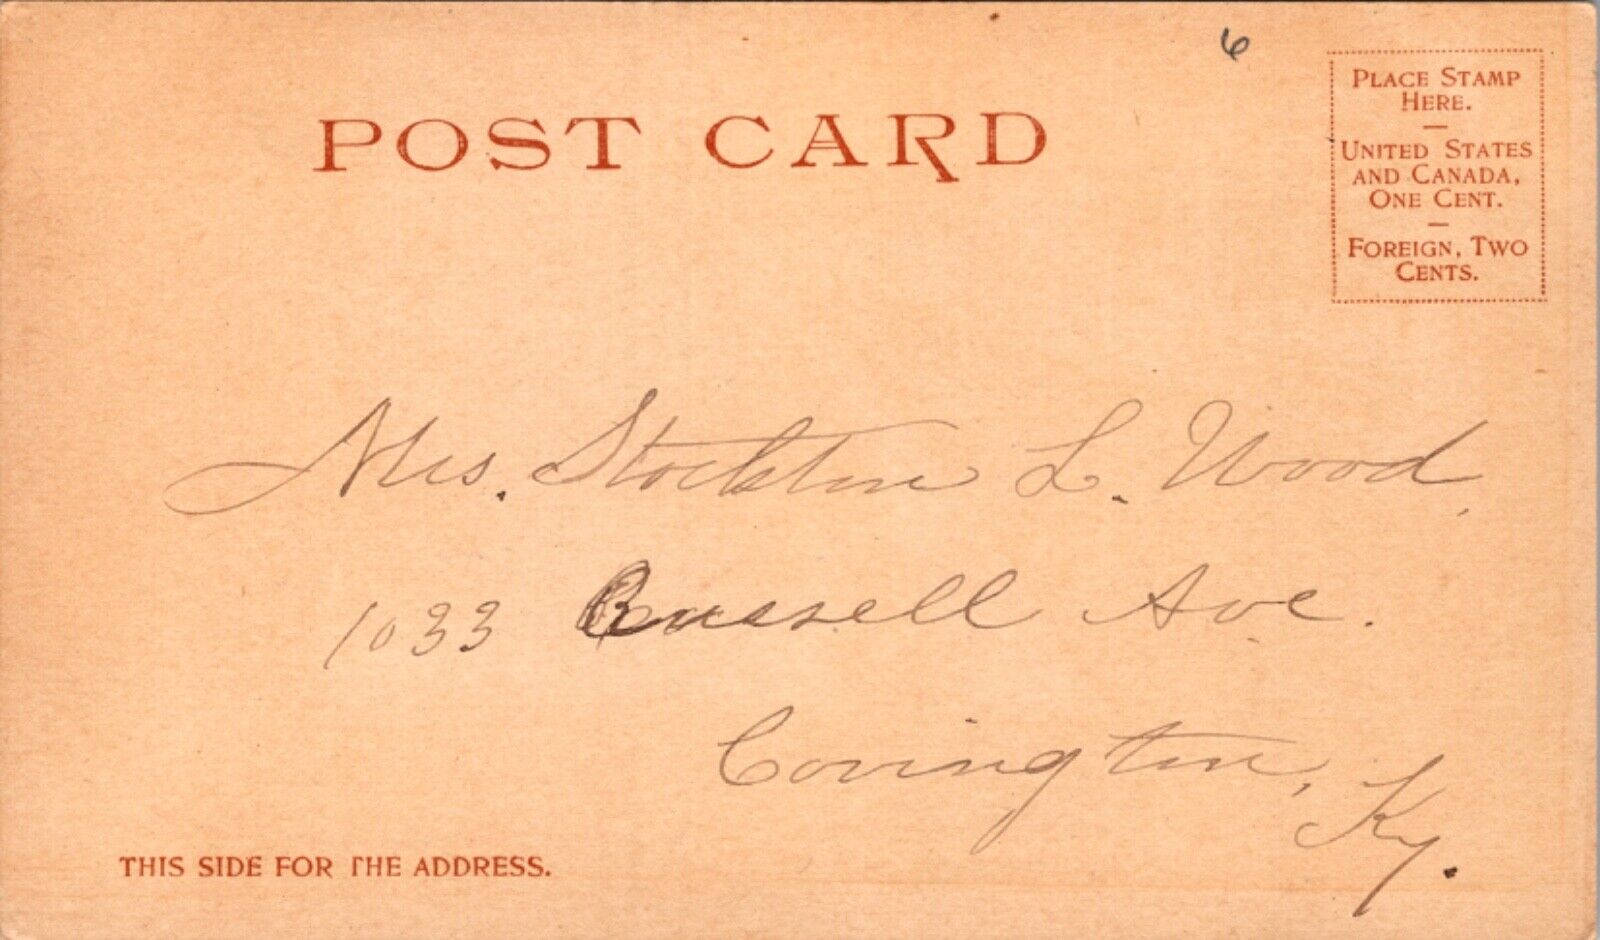 6
POST CARD
PLACE STAMP
HERE.
—
UNITED STATES
AND CANADA,
ONE CENT.
—
FOREIGN, TWO
CENTS.
Mrs. Stockton L. Wood,
1033 Russell Ave.
Covington, Ky.
THIS SIDE FOR THE ADDRESS.